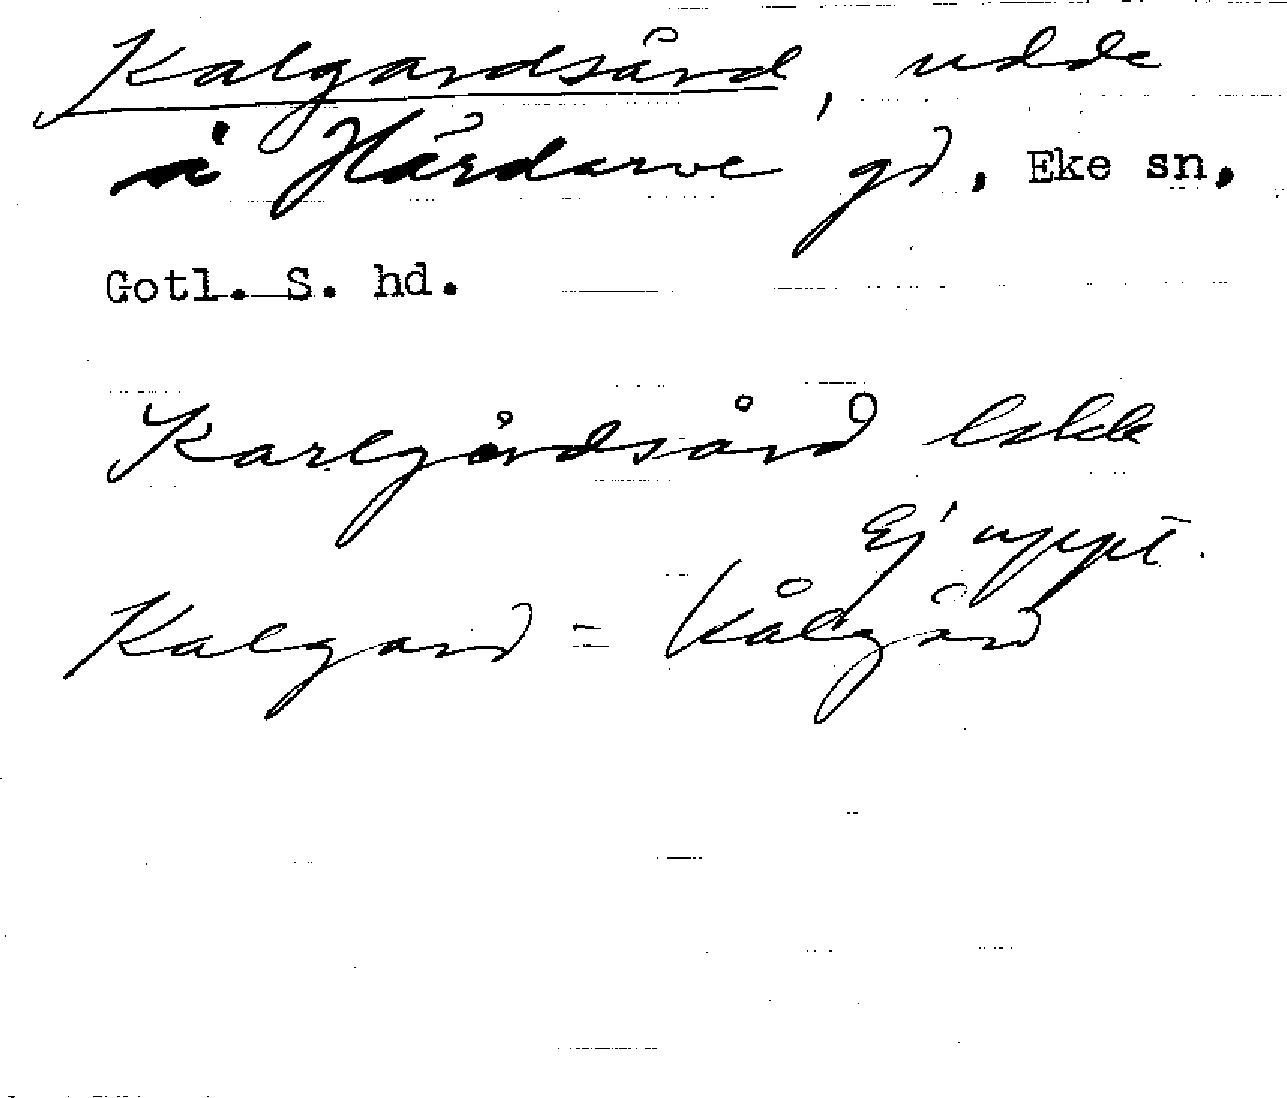 Kalgardsård, udde
å Hårdarve gd. Eke sn.
Gotl. S. hd.
Karlgårdsård
Ej uppt.
Kalgard = kålgård